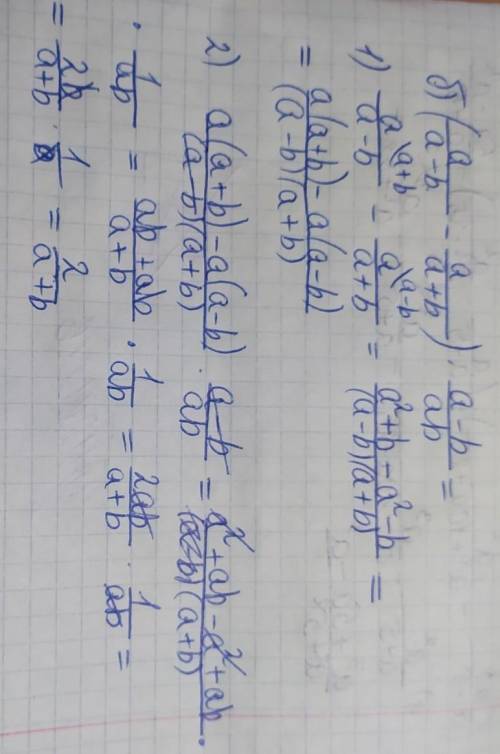 б) (a/(a-b) - a/(a+b)) · (a-b)/(ab) =
1) a\a+b/(a-b) - a\a-b/(a+b) = (a²+b-a²-b)/((a-b)(a+b)) =
= (a(a+b)-a(a-b))/((a-b)(a+b))
2) (a(a+b)-a(a-b))/((a-b)(a+b)) · (a-b)/(ab) = (a²+ab-a²+ab)/((a-b)(a+b)) ·
· 1/(ab) = (ab+ab)/(a+b) · 1/(ab) = 2ab/(a+b) · 1/(ab) =
= 2b/(a+b) · 1/b = 2/(a+b)